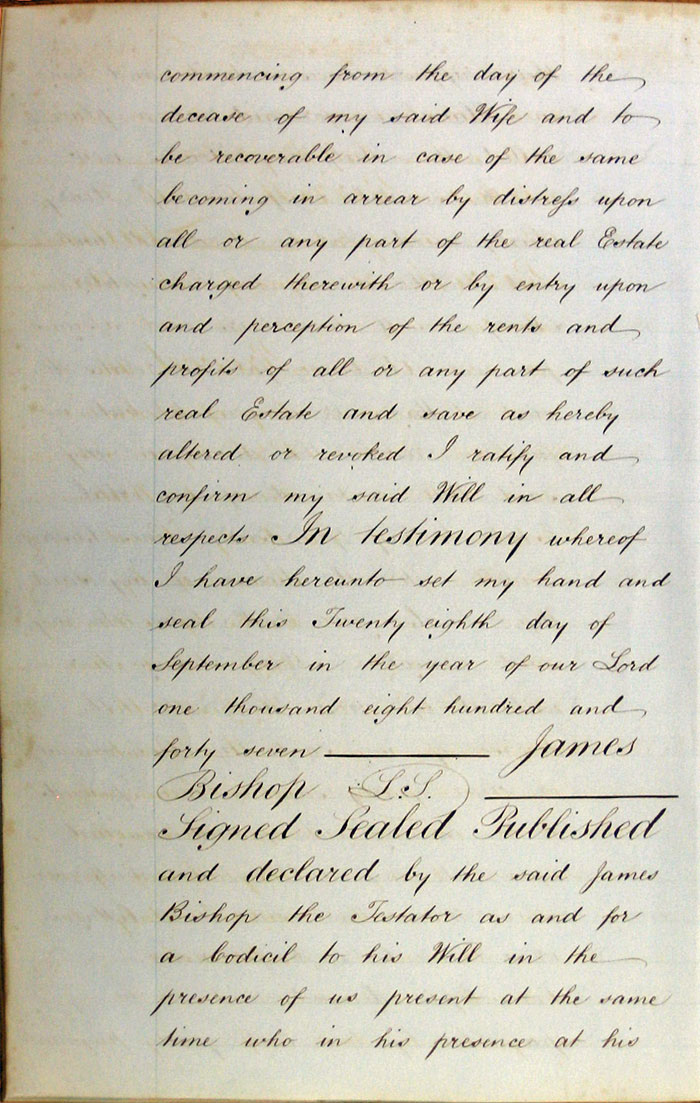 commencing from the day of the
decease of my said Wife and to
be recoverable in case of the same
becoming in arrear by distreſs upon
all or any part of the real Estate
charged therewith or by entry upon
and perception of the rents and
profits of all or any part of such
real Estate and save as hereby
altered or revoked I ratify and
confirm my said Will in all
respects In testimony whereof
I have hereunto set my hand and
seal this Twenty eighth day of
September in the year of our Lord
one thousand eight hundred and
forty seven James
Bishop L.S.
Signed Sealed Published
and declared by the said James
Bishop the Testator as and for
a Codicil to his Will in the
presence of us present at the same
time who in his presence at his